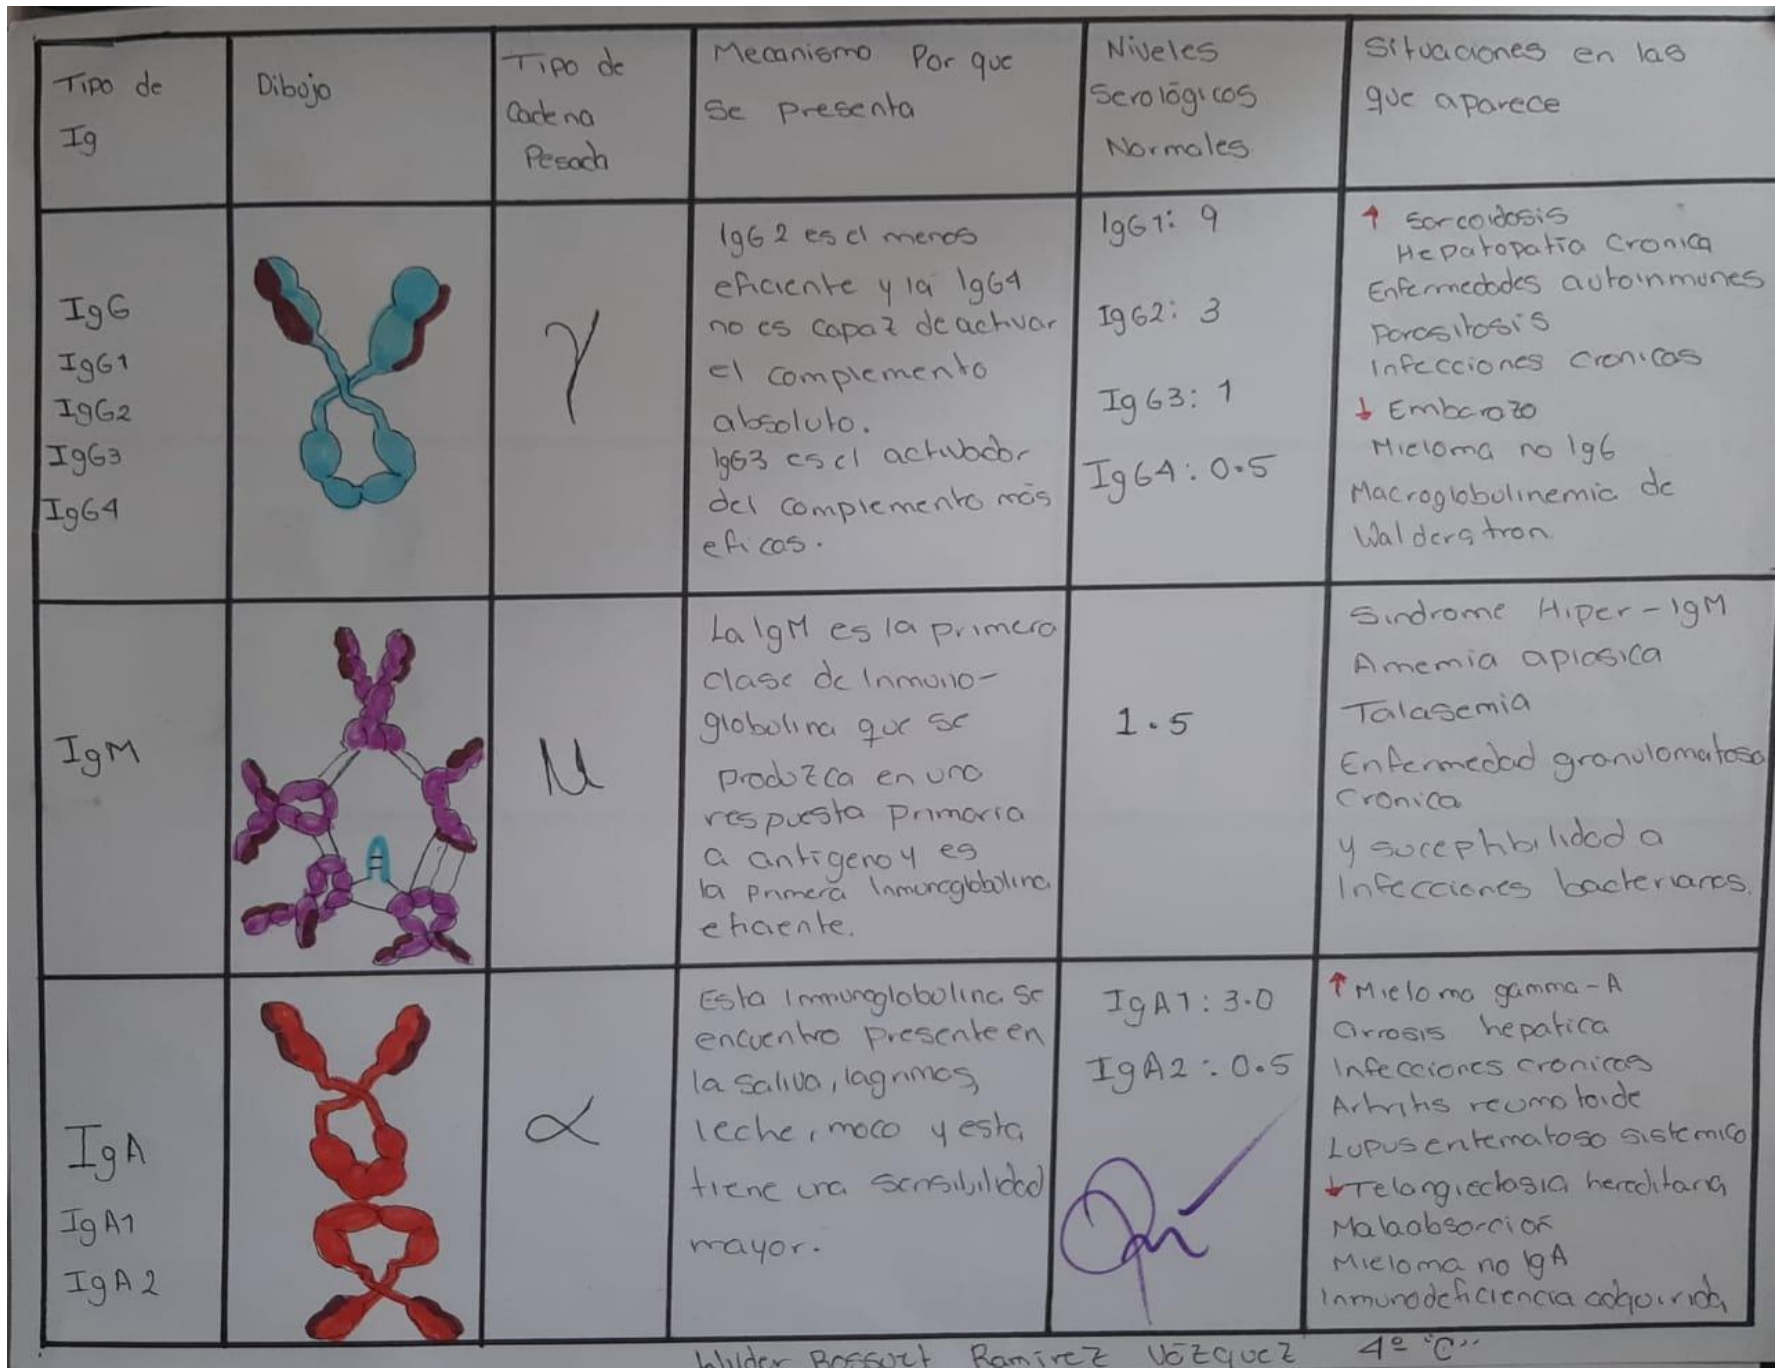 Tipo de
Ig
Dibojo
Tipo de
Cadena
Pesada
Mecanismo Por que
Se presenta
Niveles
Serológicos
Normales
Situaciones en las
que aparece
IgG
IgG1
IgG2
IgG3
IgG4
γ
IgG2 es el menos
eficiente y la IgG4
no es capaz de activar
el complemento
absoluto.
IgG3 es el activador
del complemento más
eficas.
IgG1: 9
IgG2: 3
IgG3: 1
IgG4: 0.5
↑ Sarcoidosis
Hepatopatía Cronica
Enfermedades autoinmunes
Parasitosis
Infecciones cronicas
↓ Embarazo
Mieloma no IgG
Macroglobulinemia de
Walderstron
IgM
A
μ
La IgM es la primera
clase de Inmuno-
globulina que se
produzca en una
respuesta primaria
a antígeno y es
la primera Inmunoglobulina
eficiente.
1.5
Sindrome Hiper-IgM
Amemia aplasica
Talasemia
Enfermedad granulomatosa
Cronica
y suceptibilidad a
Infecciones bacterianas.
IgA
IgA1
IgA2
α
Esta Inmunoglobulina se
encuentra presente en
la saliva, lagrimas,
leche, moco y esta
tiene una sensibilidad
mayor.
IgA1: 3.0
IgA2: 0.5
↑ Mieloma gamma-A
Cirrosis hepatica
Infecciones cronicas
Artritis reumatoide
Lupus eritematoso sistemico
↓ Telangiectasia hereditaria
Malaabsorción
Mieloma no IgA
Inmunodeficiencia adquirida
Wilder Bossuet Ramirez Vázquez 4º "C"